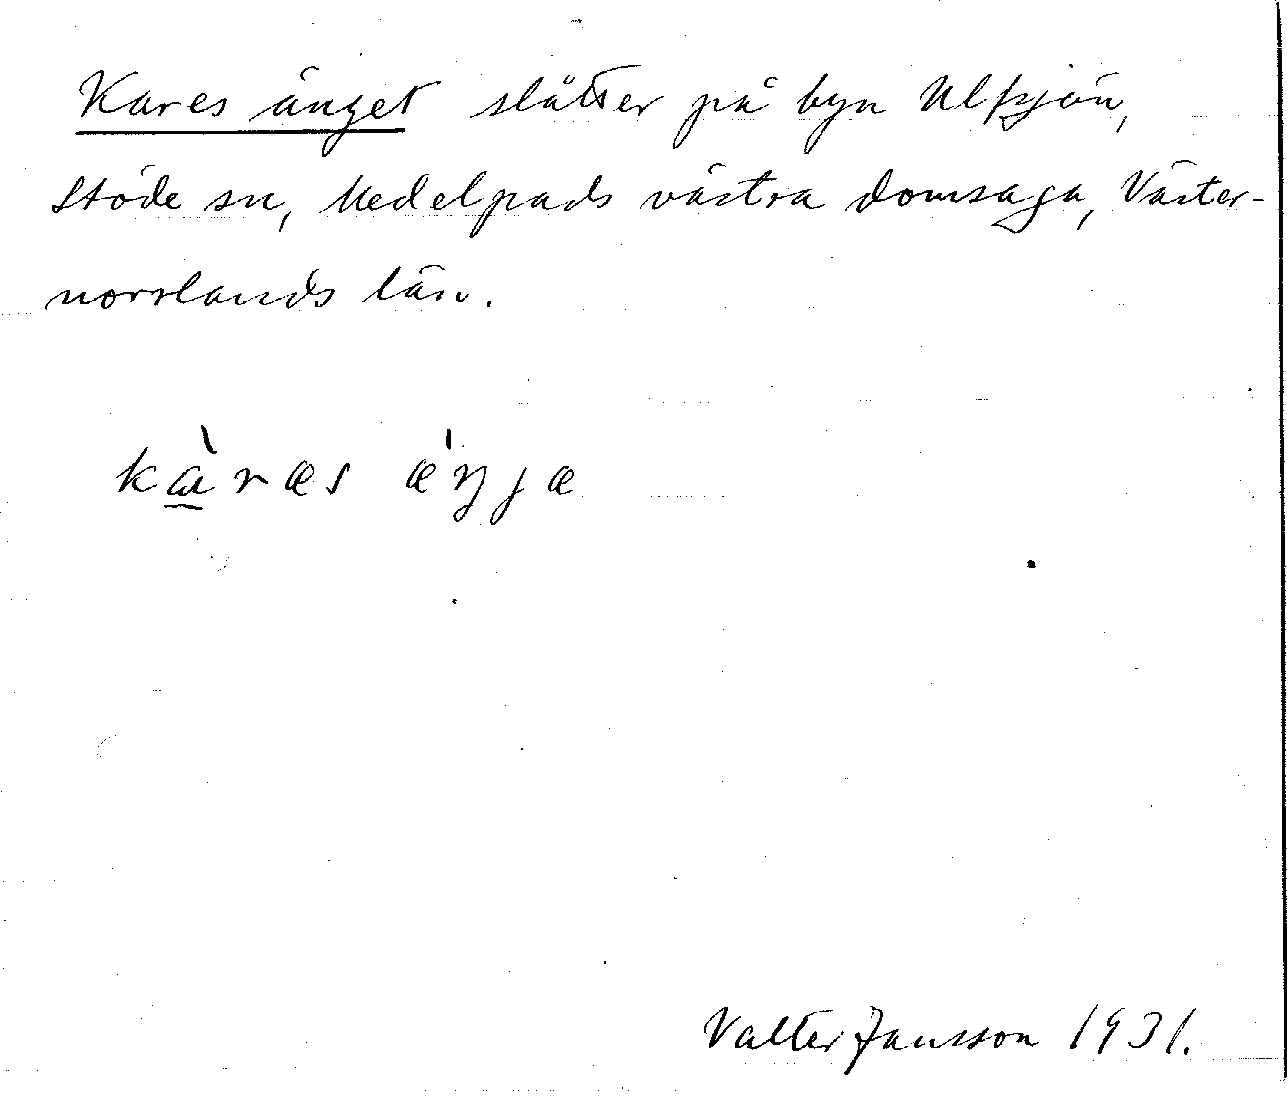 Kares änget slåtter på byn Ulfsjön,
Stöde sn, Medelpads västra domsaga, Väster-
norrlands län.
kàræs æ̍ŋjæ
Valter Jansson 1931.